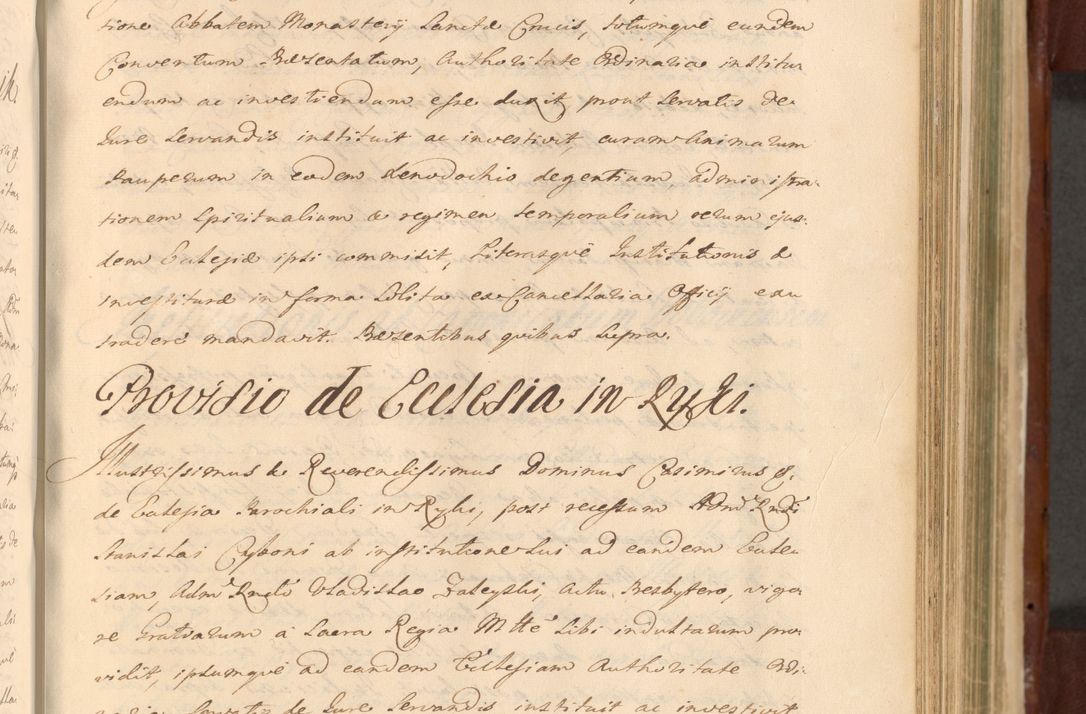 tione Abbatem Monasterij Sanctæ Crucis, totumqué eundem
Conventum Præsentatum, Authoritate Ordinaria institu
endum ac investiendum esse duxit, prout Servatis de
Jure Servandis instituit ac investivit, curam Animarum
Pauperum in eodem Xenodochio degentium, administra-
tionem Spiritualium & regimen temporalium rerum ejus-
dem Ecclesiæ ipsi commisit, Literasqué Institutionis &
investituræ in forma Solita ex Cancellaria Officij ex
tradere mandavit. Præsentibus quibus Supra.
Provisio de Ecclesia in Ryki.
Illustrissimus & Reverendissimus Dominus Casimirus &.
de Ecclesia Parochiali in Ryki, post recessum Adm Rndi
Stanislai Cyboni ab institutione Sui ad eandem Eccle
siam, Adm Rndo Vladislao Zaleyski, Actu Presbytero, vigo
re Gratiarum a Sacra Regia Mtte Sibi indultarum pro
vidit, ipsumqué ad eandem Ecclesiam Authoritate Ordi-
naria Servatis de Jure Servandis instituit ac investivit